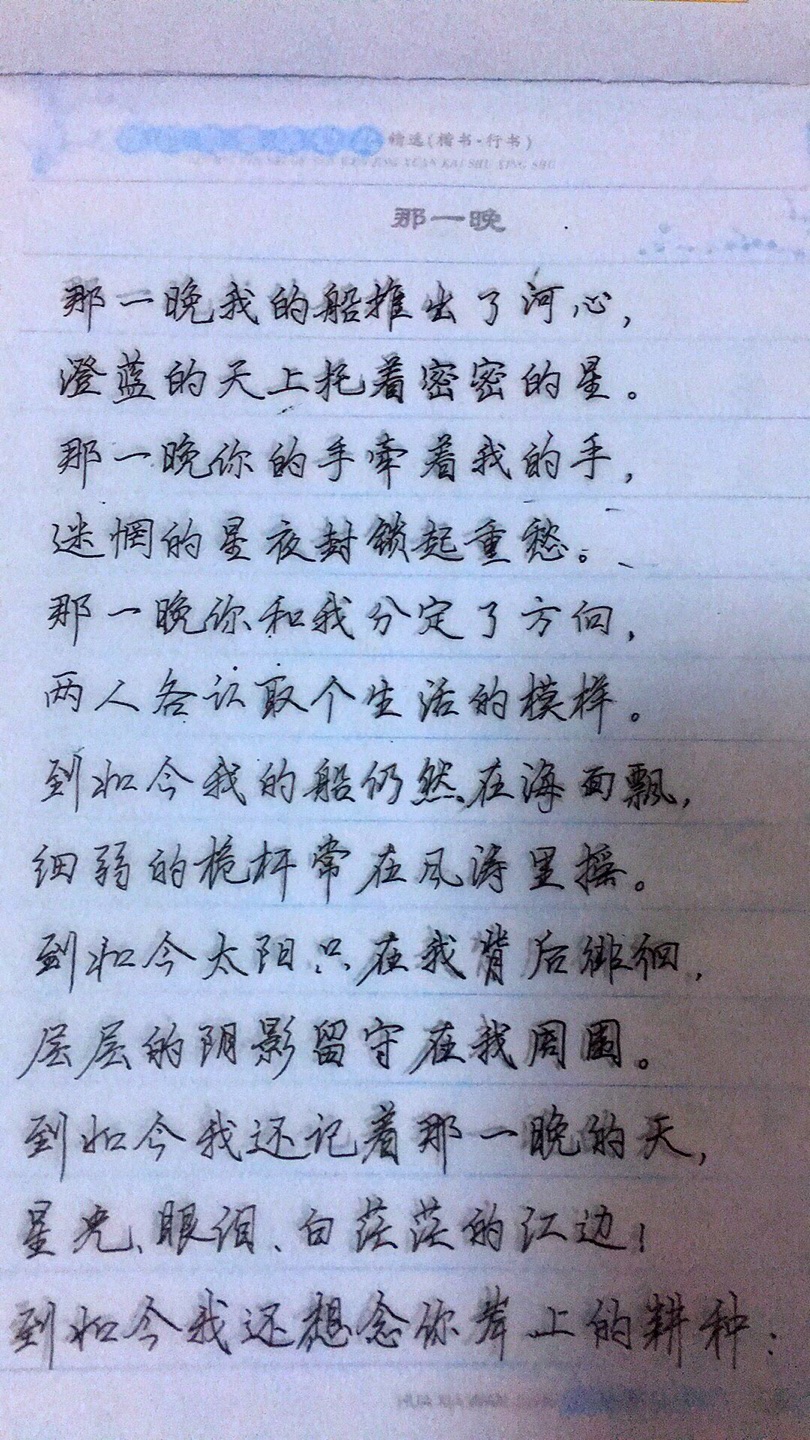 精选(楷书·行书)
那一晚
那一晚我的船推出了河心,
澄蓝的天上托着密密的星。
那一晚你的手牵着我的手,
迷惘的星夜封锁起重愁。
那一晚你和我分定了方向,
两人各认取个生活的模样。
到如今我的船仍然在海面飘,
细弱的桅杆常在风涛里摇。
到如今太阳只在我背后徘徊,
层层的阴影留守在我周围。
到如今我还记着那一晚的天,
星光、眼泪、白茫茫的江边!
到如今我还想念你岸上的耕种: